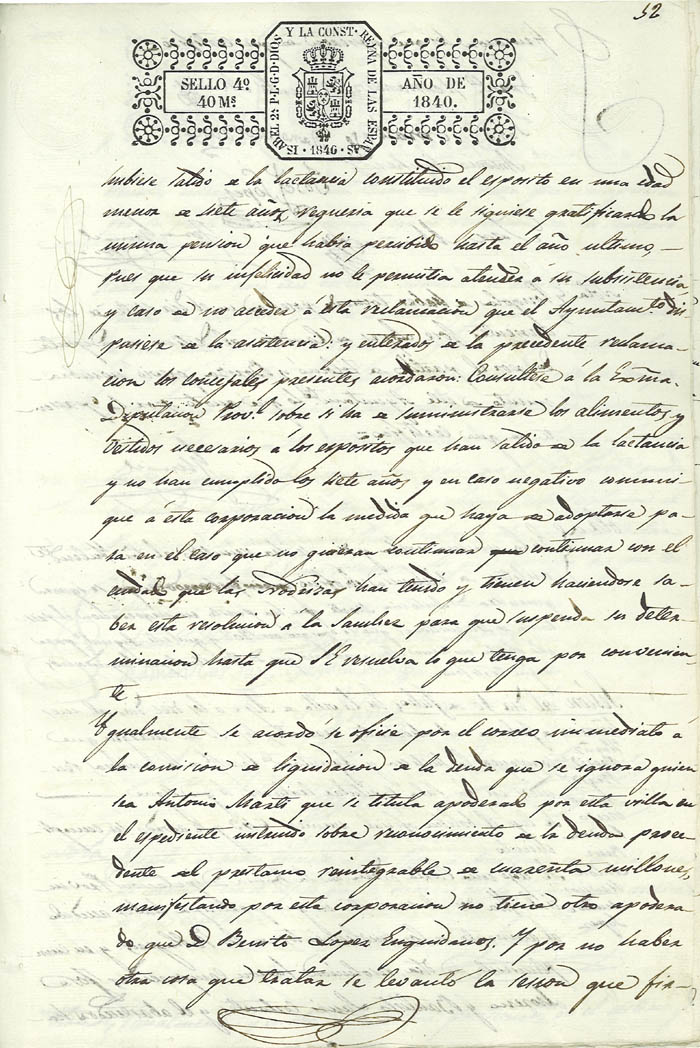 52
ISABEL 2ª P.L.G.D.DIOS Y LA CONST. REYNA DE LAS ESPAÑAS · 1840 ·
SELLO 4º
40 Ms
AÑO DE
1840.
hubiese salido de la lactancia constituido el esposito en una edad
menor de siete años requeria que se le siguiese gratificando la
misma pension que habia percibido hasta el año ultimo,
pues que su infelicidad no le permitia atender á su subsistencia
y caso de no acceder á esta reclamacion que el Ayuntamto. dis
pusiese de la asistencia: y enterados de la precedente reclama
cion los concejales presentes acordaron: Consultese á la Exma.
Diputacion Provl. sobre si ha de suministrarse los alimentos y
vestidos necesarios á los espositos que han salido de la lactancia
y no han cumplido los siete años y en caso negativo comuni
que á esta corporacion la medida que haya de adoptarse pa
ra en el caso que no quieran continuar continuar con el
cuidado que las Nodrizas han tenido y tienen haciendose sa
ber esta resolucion á la Sanchez para que suspenda su deter
minacion hasta que S E resuelva lo que tenga por convenien
te
Ygualmente se acordó se oficie por el correo inmediato á
la comision de liquidacion de la deuda que se ignora quien
sea Antonio Marti que se titula apoderado por esta villa en
el espediente instruido sobre reconocimiento de la deuda proce
dente del prestamo reintegrable de cuarenta millones,
manifestando por esta corporacion no tiene otro apodera
do que D Benito Lopez Enguidanos. Y por no haber
otra cosa que tratar se levantó la sesion que fir-